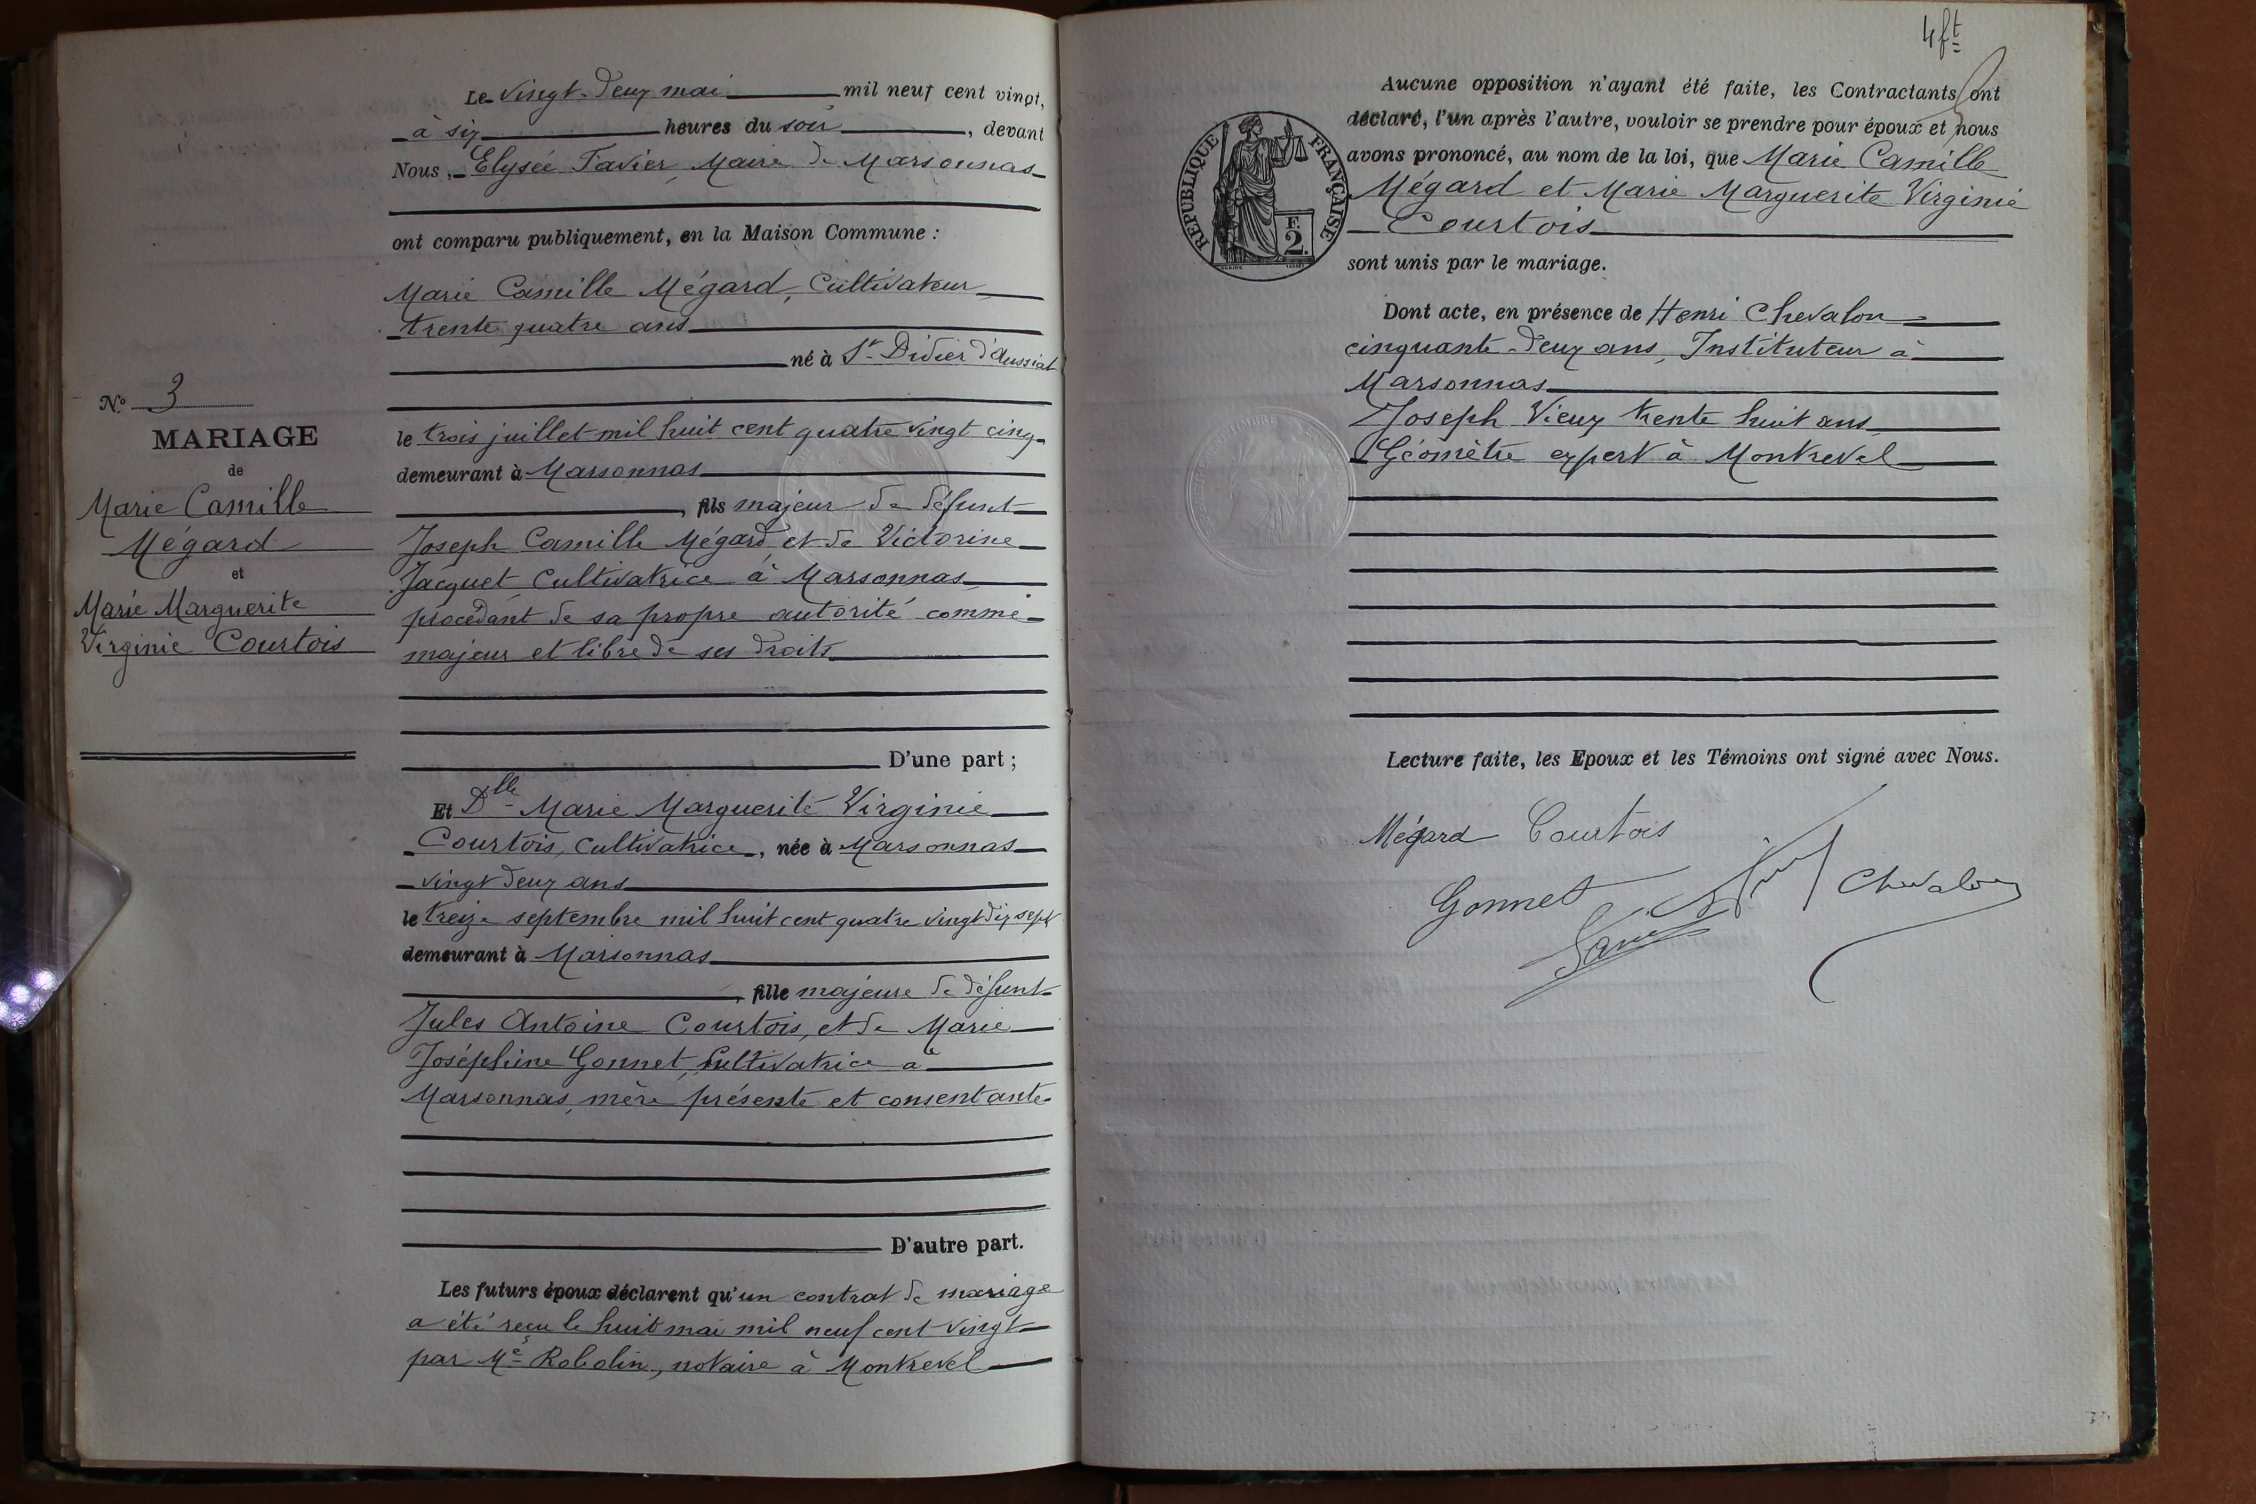 N.º 3
MARIAGE
de
Marie Camille
Mégard
et
Marie Marguerite
Virginie Courtois
Le vingt-deux mai mil neuf cent vingt,
à six heures du soir, devant
Nous, Elysée Favier, Maire de Marsonnas
ont comparu publiquement, en la Maison Commune :
Marie Camille Mégard, Cultivateur
trente quatre ans
né à St Didier d'Aussiat
le trois juillet mil huit cent quatre vingt cinq
demeurant à Marsonnas
, fils majeur de défunt
Joseph Camille Mégard, et de Victorine
Jacquet, Cultivatrice à Marsonnas,
procédant de sa propre autorité comme
majeur et libre de ses droits
D'une part ;
Et Dlle Marie Marguerite Virginie
Courtois, Cultivatrice, née à Marsonnas
vingt deux ans
le treize septembre mil huit cent quatre vingt dix sept
demeurant à Marsonnas
, fille majeure de défunt
Jules Antoine Courtois, et de Marie
Joséphine Gonnet, Cultivatrice à
Marsonnas, mère présente et consentante
D'autre part.
Les futurs époux déclarent qu'un contrat de mariage
a été reçu le huit mai mil neuf cent vingt
par Me Robolin, notaire à Montrevel
4 ft
Aucune opposition n'ayant été faite, les Contractants ont
déclaré, l'un après l'autre, vouloir se prendre pour époux et nous
avons prononcé, au nom de la loi, que Marie Camille
Mégard et Marie Marguerite Virginie
Courtois
sont unis par le mariage.
RÉPUBLIQUE FRANÇAISE
F.
2.
Dont acte, en présence de Henri Chevalon
cinquante-deux ans, Instituteur à
Marsonnas
Joseph Vieux trente huit ans
Géomètre expert à Montrevel
Lecture faite, les Epoux et les Témoins ont signé avec Nous.
Mégard Courtois
Gonnet
Chevalon